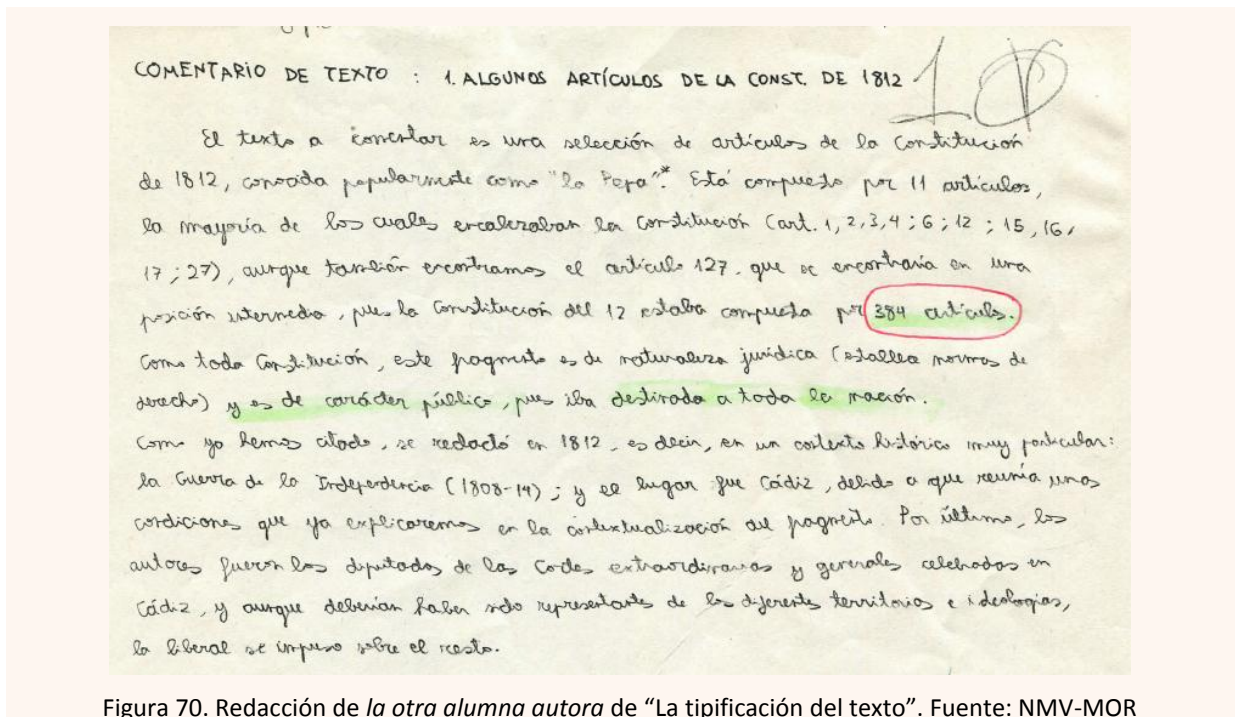 COMENTARIO DE TEXTO : 1. ALGUNOS ARTÍCULOS DE LA CONST. DE 1812
10
El texto a comentar es una selección de artículos de la Constitución
de 1812, conocida popularmente como "la Pepa".* Está compuesto por 11 artículos,
la mayoría de los cuales encabezaban la Constitución (art. 1, 2, 3, 4 ; 6 ; 12 ; 15, 16,
17 ; 27), aunque también encontramos el artículo 127, que se encontraría en una
posición intermedia, pues la Constitución del 12 estaba compuesta por 384 artículos.
Como toda Constitución, este fragmento es de naturaleza jurídica (establece normas de
derecho) y es de carácter público, pues iba destinada a toda la nación.
Como ya hemos citado, se redactó en 1812, es decir, en un contexto histórico muy particular:
la Guerra de la Independencia (1808-14) ; y el lugar fue Cádiz, debido a que reunía unas
condiciones que ya explicaremos en la contextualización del fragmento. Por último, los
autores fueron los diputados de las Cortes extraordinarias y generales celebradas en
Cádiz, y aunque deberían haber sido representantes de los diferentes territorios e ideologías,
la liberal se impuso sobre el resto.
Figura 70. Redacción de la otra alumna autora de “La tipificación del texto”. Fuente: NMV-MOR